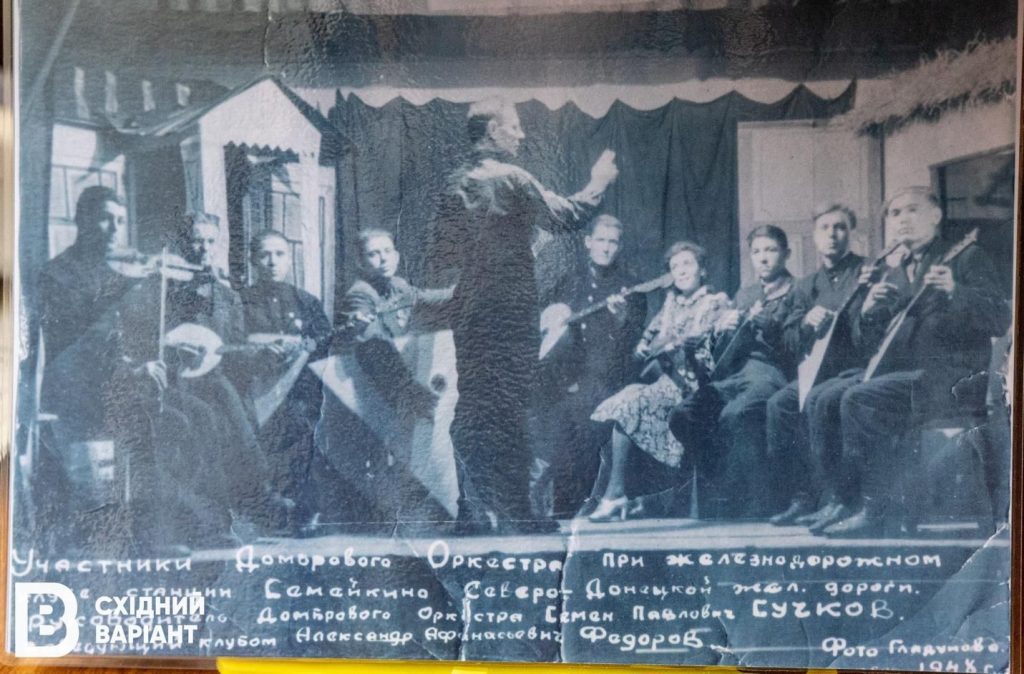 Участники Домрового Оркестра при железнодорожном
станции Семейкино Северо-Донецкой жел. дороги.
Руководитель Домрового Оркестра Семен Павлович СУЧКОВ.
клубом Александр Афанасьевич Федоров.
Фото Гладунова.
194 г.
СХІДНИЙ
ВАРІАНТ